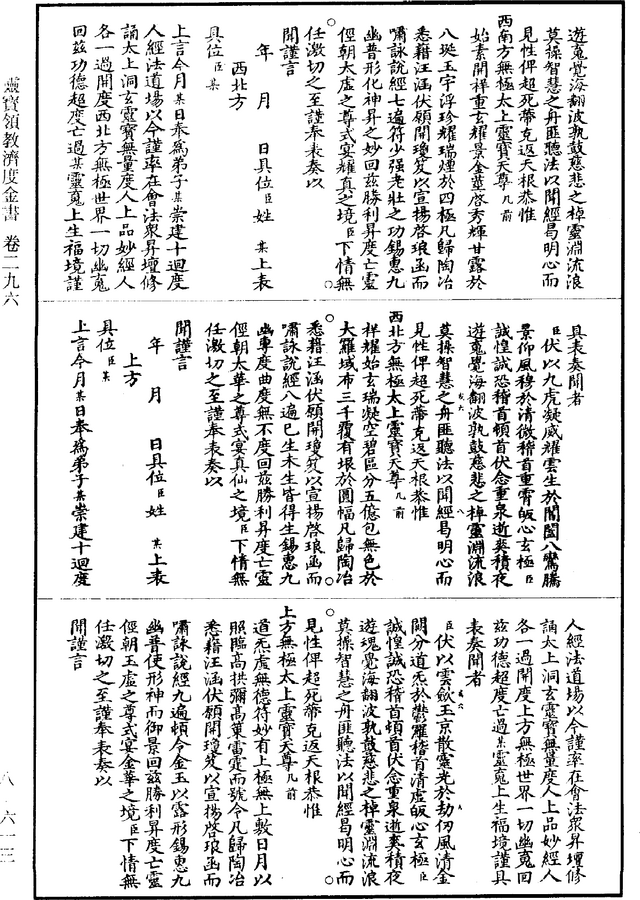 遊蒐覺海翻波孰鼓慈悲之棹靈淵流浪
莫操智慧之舟匪聽法以聞經曷明心而
見性俾超死蔕克返天根恭惟
西南方無極太上靈寶天尊几前
始素開祥重玄耀景金華啓秀輝甘露於
八埏玉宇浮珍耀瑞煙於四極凡歸陶冶
悉藉汪涵伏願開瓊笈以宣揚啓琅函而
嘯詠說經七遍符少强老壯之功錫惠九
幽普形化神昇之妙回兹勝利昇度亡靈
俓朝太虛之尊式宴耀真之境臣下情無
任激切之至謹奉表奏以
聞謹言
年 月 日具位臣姓 某上表
西北方
具位臣某
上言今月某日奉爲弟子某崇建十迴度
人經法道場以今謹率在會法衆昇壇修
誦太上洞玄靈寶無量度人上品妙經人
各一過開度西北方無極世界一切幽蒐
回兹功德超度亡過某靈蒐上生福境謹
靈寶領教濟度金書 卷二九六
具表奏聞者
臣伏以九虎凝威耀雲生於閶闔八鸞騰
景仰風穆於清微稽首重霄皈心玄極臣
誠惶誠恐稽首頓首伏念重泉逝爽積夜
遊蒐覺海翻波孰鼓慈悲之棹靈淵流浪
莫操智慧之舟匪聽法以聞經曷明心而
見性俾超死蔕克返天根恭惟
西北方無極太上靈寶天尊几前
大羅域布三千覆有垠於圓幅凡歸陶冶
祥耀始玄瑞凝空碧區分五億包無色於
悉藉汪涵伏願開瓊笈以宣揚啓琅函而
嘯詠說經八遍已生未生皆得生錫惠九
幽東度曲度無不度回兹勝利昇度亡靈
俓朝太華之尊式宴真仙之境臣下情無
任激切之至謹奉表奏以
聞謹言
年 月 日具位臣姓 某上表
上方
具位臣某
上言今月某日奉爲弟子某崇建十迴度
人經法道場以今謹率在會法衆昇壇修
誦太上洞玄靈寶無量度人上品妙經人
各一過開度上方無極世界一切幽蒐回
兹功德超度亡過某靈蒐上生福境謹具
表奏聞者
臣伏以雲斂玉京散靈光於劫仞風清金
闕分道炁於鬱羅稽首清虛皈心玄極臣
誠惶誠恐稽首頓首伏念重泉逝爽積夜
遊瑰覺海翻波孰鼓慈悲之棹靈淵流浪
莫操智慧之舟匪聽法以聞經曷明心而
見性俾超死蔕克返天根恭惟
上方無極太上靈寶天尊几前
道炁虛無德符妙有上極無上敷日月以
照臨高拱彌高菓雷霆而號令凡歸陶冶
悉藉汪涵伏願開瓊笈以宣揚啓琅函而
嘯詠說經九遍頓令金玉以露形錫惠九
幽普使形神而御景回兹勝利昇度亡靈
俓朝玉虛之尊式宴金華之境臣下情無
任激切之至謹奉表奏以
聞謹言
八—六一三